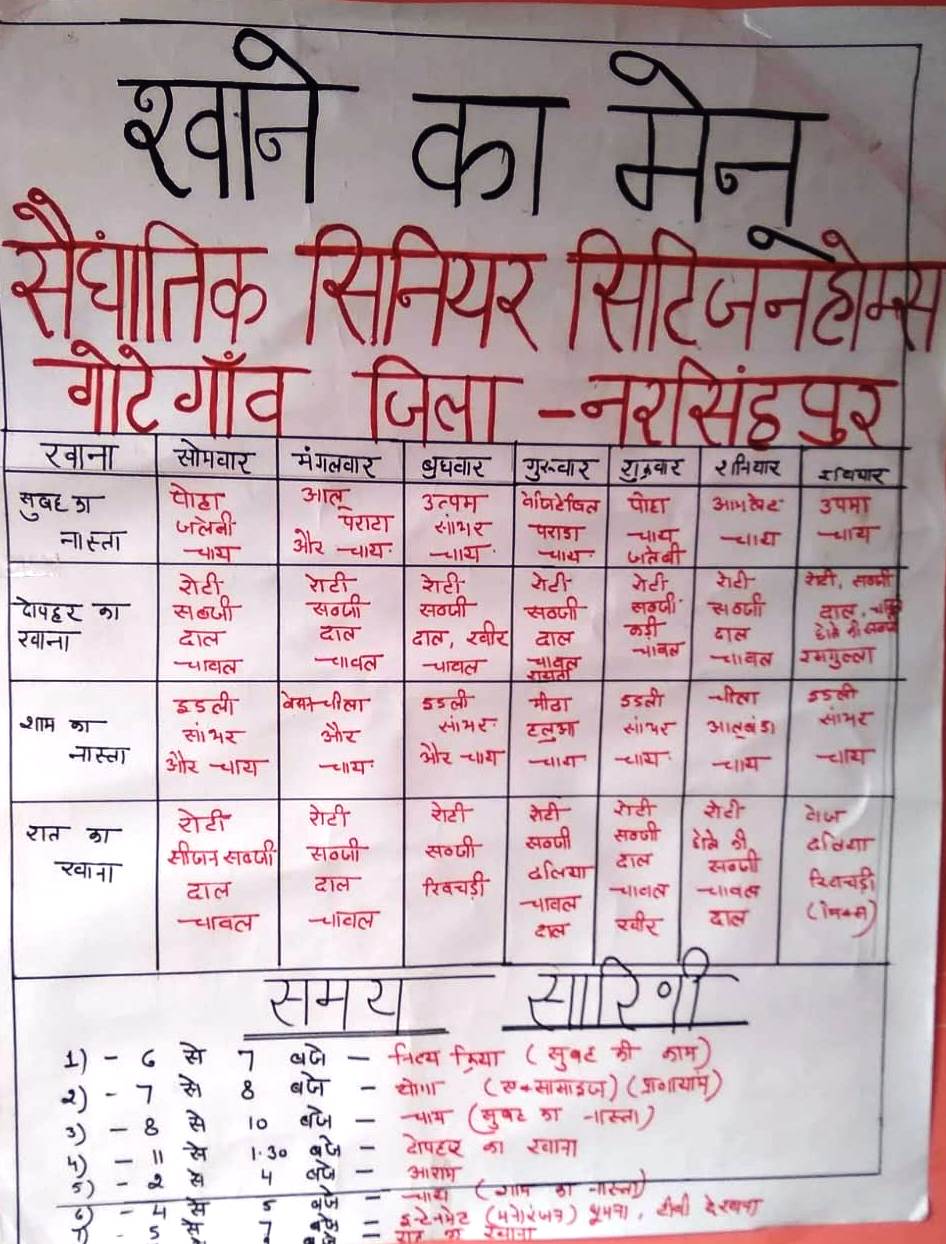 खाने का मेनू
सैधांतिक सिनियर सिटिजन होम्स
गोटेगाँव जिला - नरसिंहपुर
खाना सोमवार मंगलवार बुधवार गुरुवार शुक्रवार शनिवार रविवार
सुबह का पोहा आलू उत्पम वेजिटेबिल पोहा आमलेट उपमा
नास्ता जलेबी पराटा सांभर पराठा चाय चाय चाय
चाय और चाय चाय चाय जलेबी
रोटी रोटी रोटी रोटी रोटी रोटी रोटी, सब्जी
दोपहर का सब्जी सब्जी सब्जी सब्जी सब्जी सब्जी दाल,
खाना दाल दाल दाल, खीर दाल कड़ी दाल छोले की सब्जी
चावल चावल चावल चावल चावल चावल रसगुल्ला
रायता
इडली बेसन चीला इडली मीठा इडली चीला इडली
शाम का सांभर और सांभर हलुआ सांभर आलूबंडा सांभर
नास्ता और चाय चाय और चाय चाय चाय चाय चाय
रात का रोटी रोटी रोटी रोटी रोटी रोटी वेज
खाना सीजन सब्जी सब्जी सब्जी सब्जी सब्जी छोले की दलिया
दाल दाल खिचड़ी दलिया दाल सब्जी खिचड़ी
चावल चावल चावल चावल चावल (मिक्स)
दाल खीर दाल
समय सारिणी
1) - 6 से 7 बजे - नित्य क्रिया (सुबह की काम)
2) - 7 से 8 बजे - योगा (एक्सासाइज) (प्राणायाम)
3) - 8 से 10 बजे - चाय (सुबह का नास्ता)
4) - 11 से 1.30 बजे - दोपहर का खाना
5) - 2 से 4 बजे - आराम
6) - 4 से 5 बजे - चाय (शाम का नास्ता)
7) - 5 से 7 बजे - इन्टेनमेट (मनोरंजन) घूमना, टीवी देखना
रात का खाना